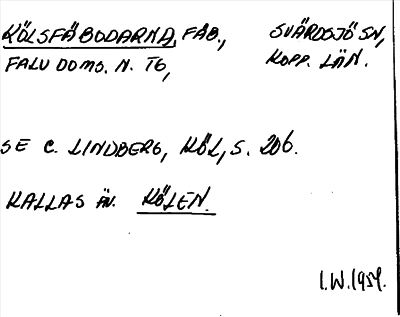 KÖLSFÄBODARNA, FÄB., SVÄRDSJÖ SN,
FALU DOMS. N. TG, KOPP. LÄN.
SE C. LINDBERG, KÖL, S. 206.
KALLAS ÄV. KÖLEN.
I.W. 1959.